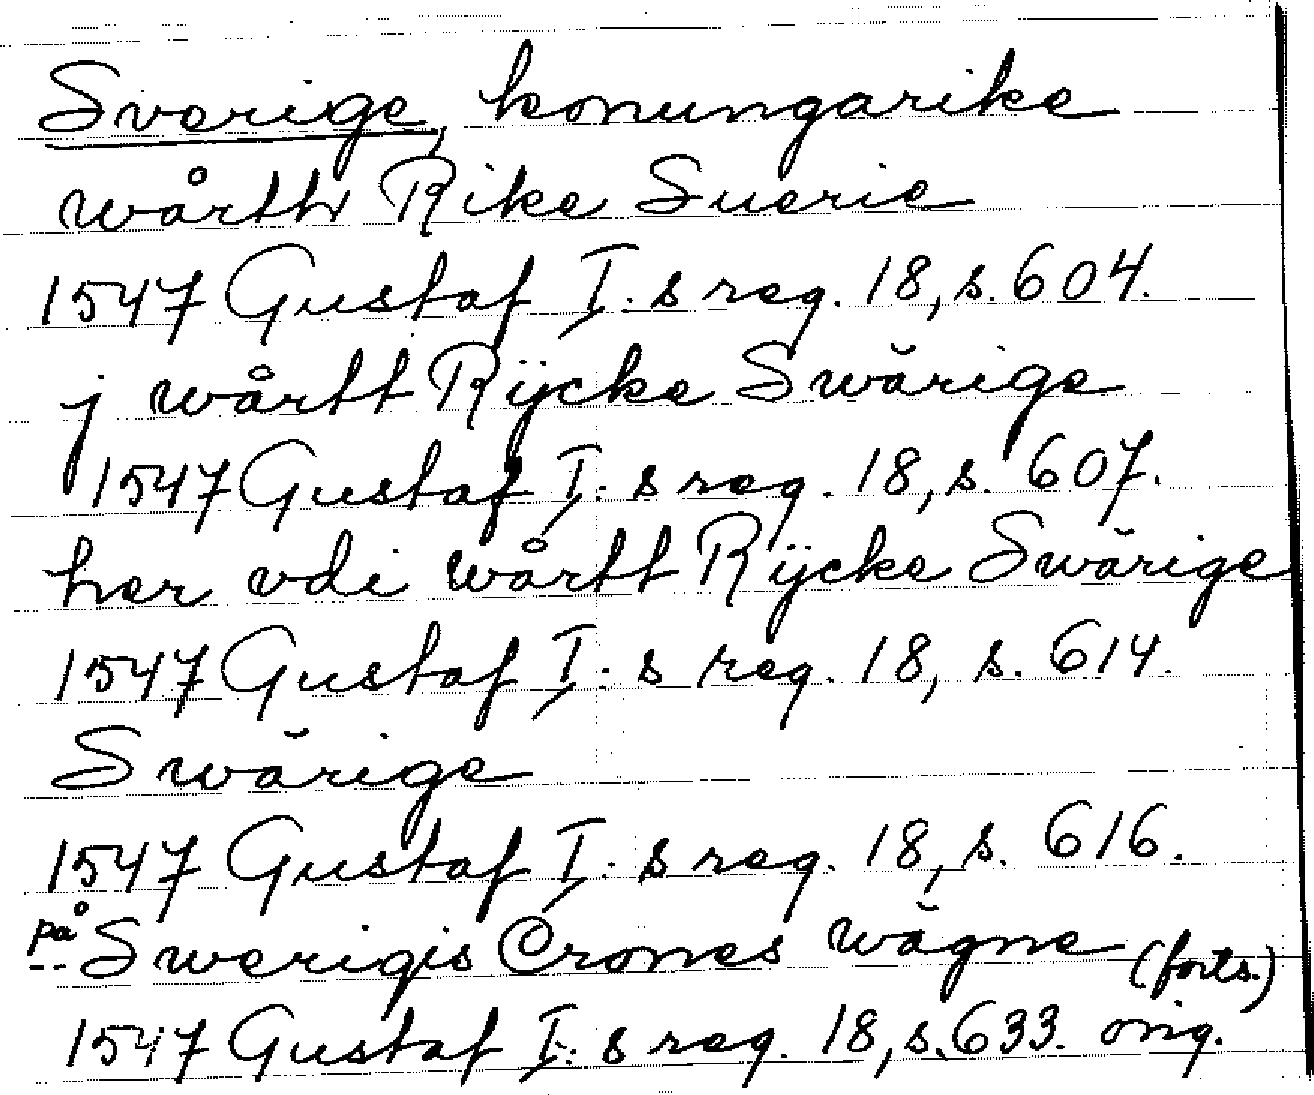 Sverige, konungarike
wårth Rike Suerie
1547 Gustaf I:s reg. 18, s. 604.
j wårtt Rÿcke Swărige
1547 Gustaf I:s reg. 18, s. 607.
her vdi wårtt Rÿcke Swărige
1547 Gustaf I:s reg. 18, s. 614.
Swărige
1547 Gustaf I:s reg. 18, s. 616.
på -- Swerigis Crones wăgne (forts.)
1547 Gustaf I:s reg. 18, s. 633. orig.